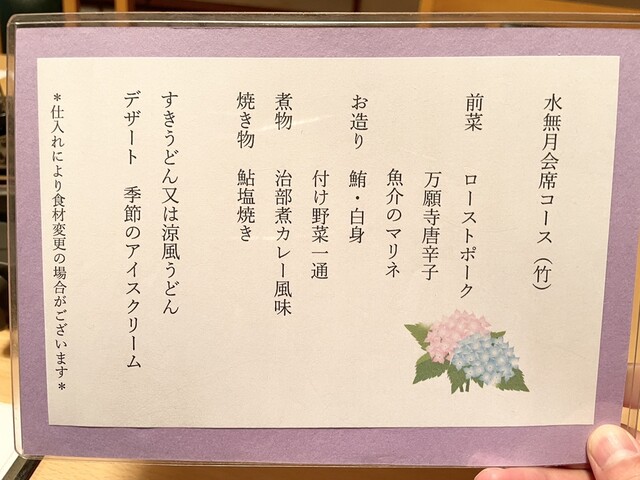 水無月会席コース（竹）
前菜　ローストポーク
万願寺唐辛子
魚介のマリネ
お造り　鮪・白身
付け野菜一通
煮物　治部煮カレー風味
焼き物　鮎塩焼き
すきうどん又は涼風うどん
デザート　季節のアイスクリーム
＊仕入れにより食材変更の場合がございます＊